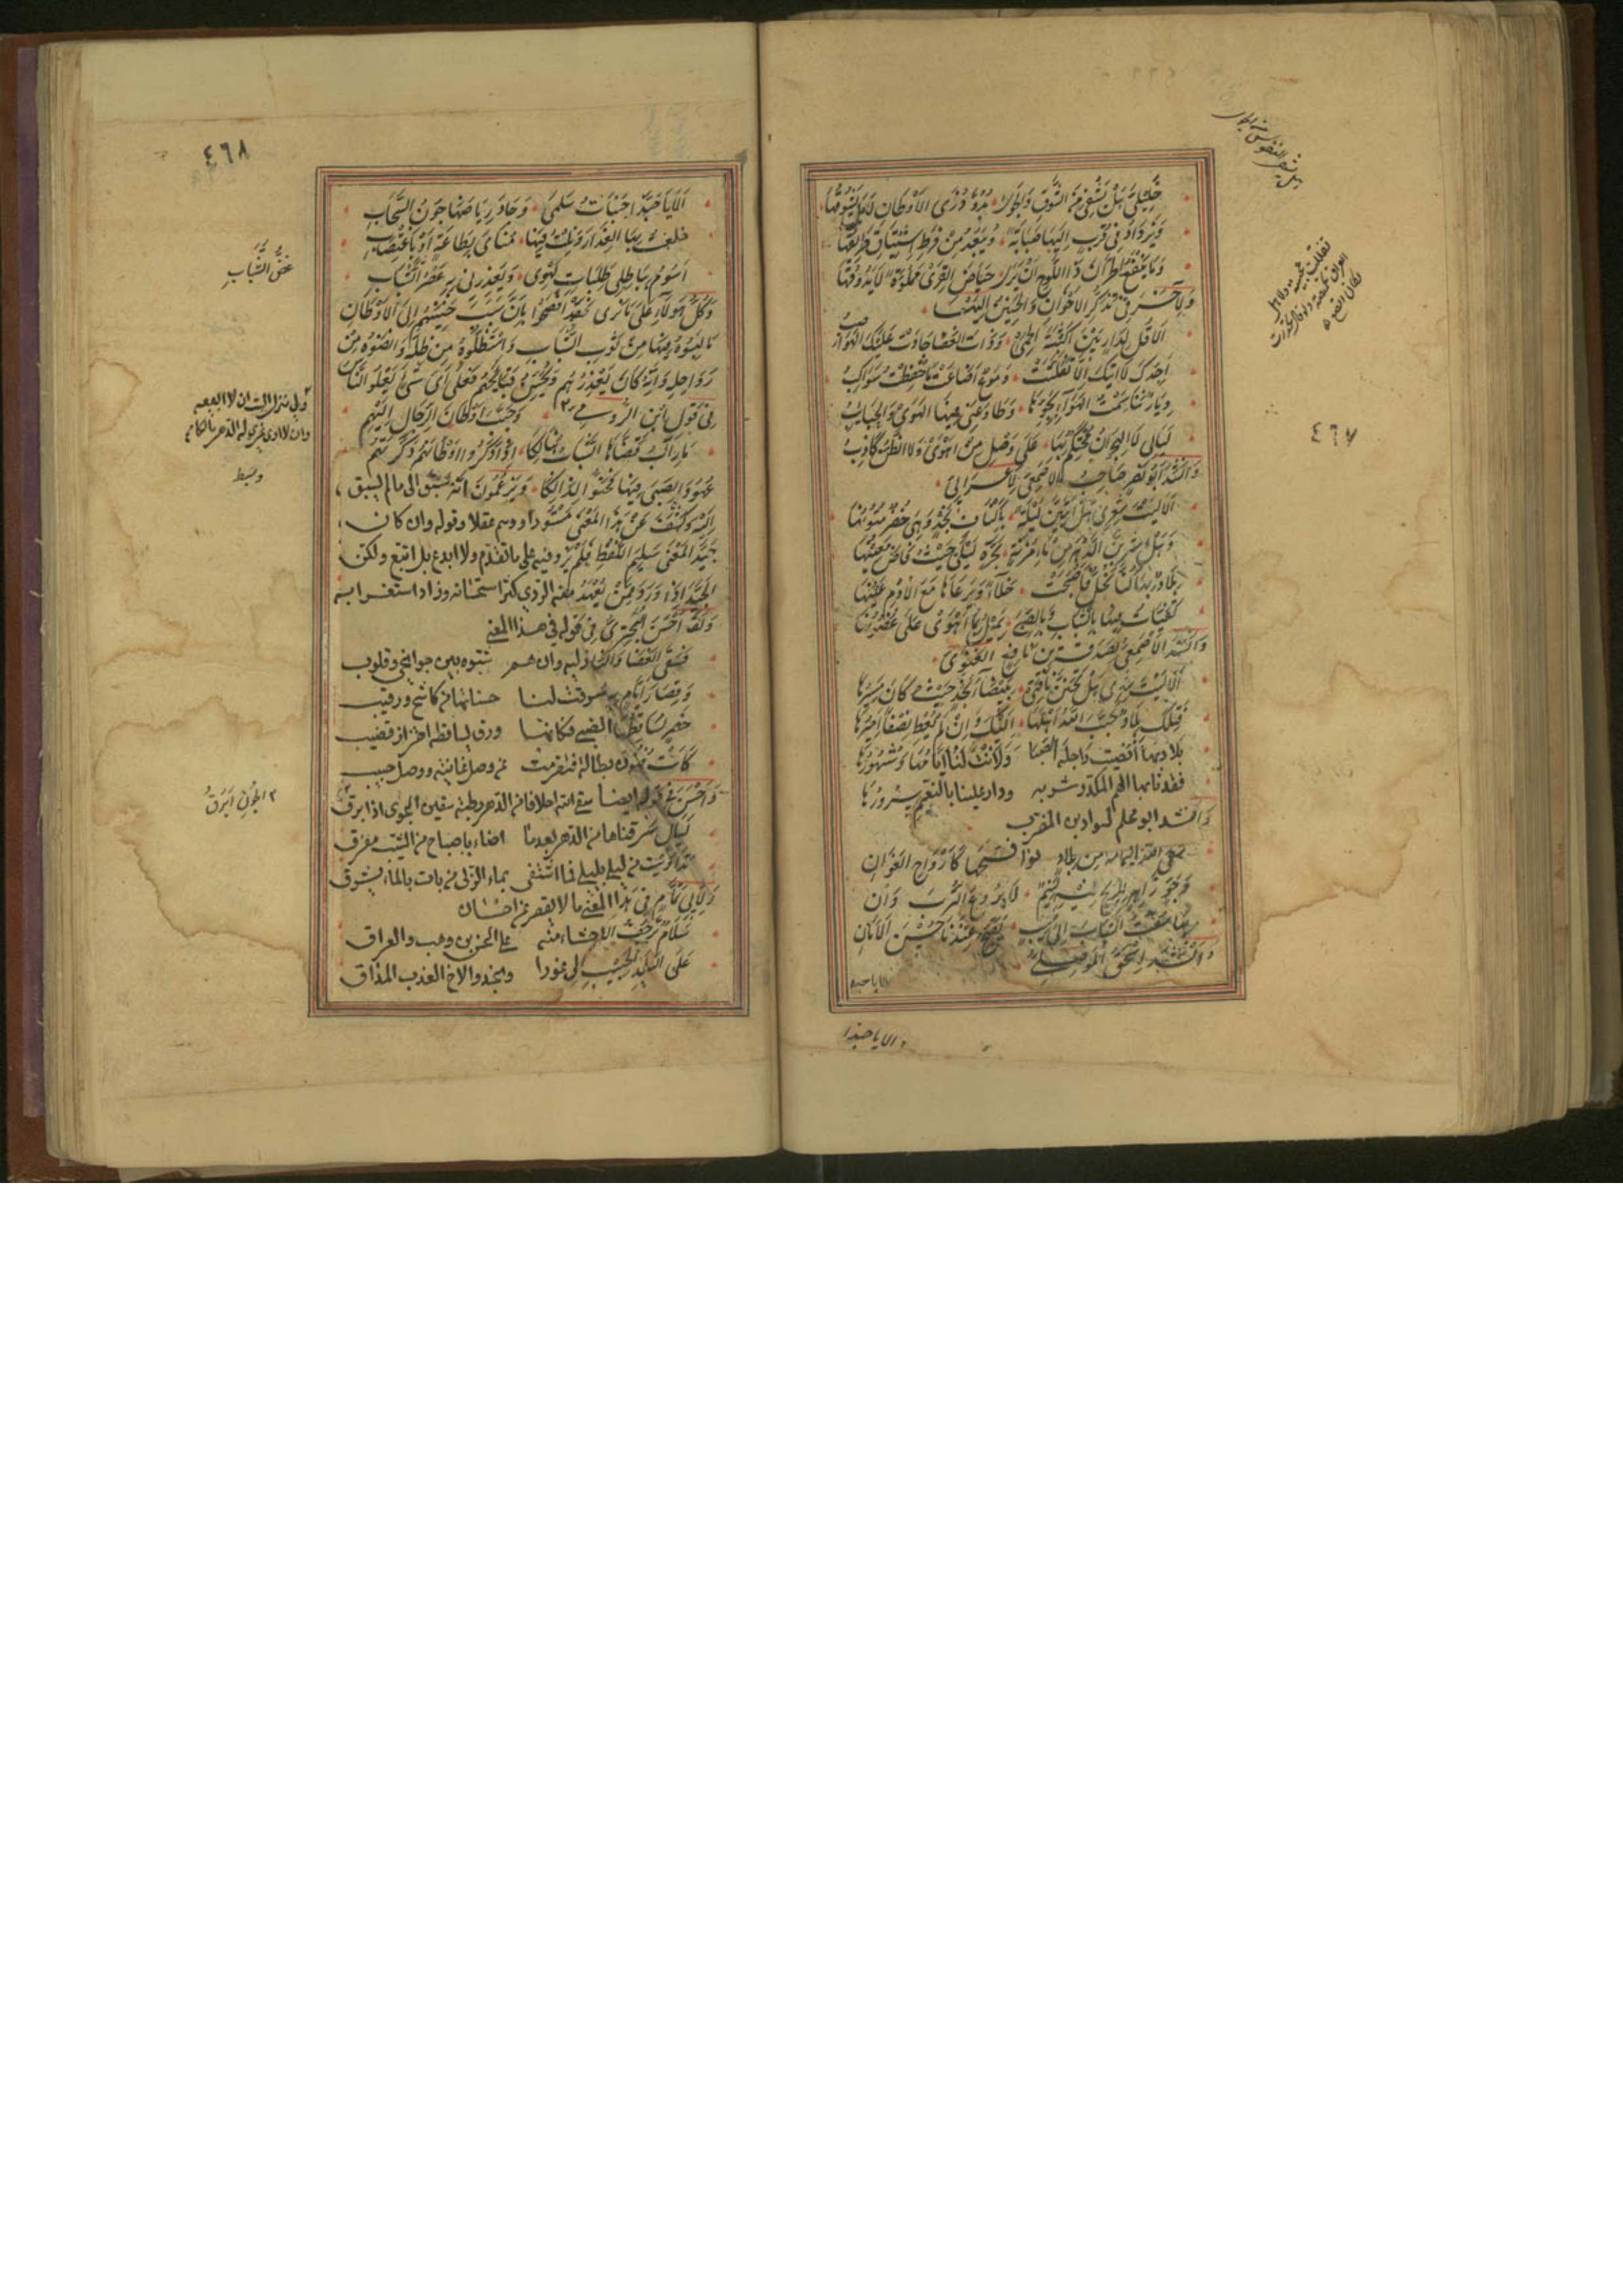 خليلي هل يشفى من الشوق والجوى بدو ذرى الأوطان لا بل يشوقها
ويزداد في قرب إليها صبابة ويبعد من فرط اشتياق طريقها
وما ينفع الحران ذا اللوح أن يرى حياض القرى مملوءة لا يذوقها
ولآخر في تذكر الإخوان والحنين إليهم
ألا قل لدار بين أكثبة الحمى وذات الغضا جادت عليك الهواضب
أجدك لا آتيك إلا تقلبت دموع أضاعت ما حفظت سواكب
ديار تناسمت الهواء بجوها وطاوعني فيها الهوى والحبائب
ليالي لا الهجران محتكم بها على وصل من أهوى ولا الظن كاذب
وأنشد أبو نصر صاحب الأصمعي لأعرابي
ألا ليت شعري هل أبيتن ليلة بأكناف نجد وهي خضر متونها
وهل أشربن الدهر من ماء مزنة بحرة ليلى حيث فاض معينها
بلاد بها كنا نحل فأصبحت خلاء ويرعاها مع الأدم عينها
تفيأت فيها بالشباب وبالصبى تميل بما أهوى علي غصونها
وأنشد الأصمعي لصدقة بن نافع الغنوي
ألا ليت شعري هل تحنن ناقتي ببيضاء نجد حيث كان مسيرها
فتلك بلاد حبب الله أهلها إليك وإن لم يعط نصفا أميرها
بلاد بها أنضيت راحلة الصبا ولانت لنا أيامها وشهورها
فقدنا بها الهم المكدر شربه ودار علينا بالنعيم سرورها
وأنشد أبو محلم لسوار بن المضرب
سقى الله اليمامة من بلاد نوافحها كأرواح الغوان
وجو زاهر للريح فيه نسيم لا يروع الترب وان
بها سقت الشباب إلى مشيب يقبح عندنا حسن الأمان
وأنشد إسحق الموصلي
ألا يا حبذا
ألا يا حبذا
٤٦٧
٤٦٨
ألا يا حبذا جنبات سلمى وجاد رياضها جون السحاب
خلعت بها العذار ونلت فيها مناي بطاعة أو باغتصاب
أسوم بباطلي طلبات لهوي ويعذرني به عصر الشباب
غض الشباب
وكل هؤلاء على ما ترى قد أفصحوا بأن سبب حنينهم إلى الأوطان
ما لبسوه فيها من ثوب الشباب واستظلوه من ظله وأنضوه من
رواحله وأنه كان يعذرهم ويحسن قبائحهم فعلى أي شيء يغلو الناس
في قول ابن الرومي وحبب أوطان الرجال إليهم
مآرب قضاها الشباب هنالكا إذا ذكروا أوطانهم ذكرتهم
عهود الصبى فيها فحنوا لذالكا ويزعمون أنه سبق إلى ما لم يسبق
إليه وكشف عن هذا المعنى مستورا ووسم غفلا وقوله وإن كان
جيد المعنى سليم اللفظ فلم يزد فيه على ما تقدم ولا أبدع بل اتبع ولكن
الجيد إذا ورد ممن يعهد منه الردي كثر استحسانه وزاد استغرابه
ولقد أحسن البحتري في قوله في هذا المعنى
فسقى الغضا والنازليه وإن هم شبوه بين جوانح وقلوب
وقصار أيام به سرقت لنا حسناتها من كاشح ورقيب
خضر تساقطها الصبى فكأنها ورق يساقطه اهتزاز قضيب
كانت فنون بطالة فتقطعت عن وصل غانية ووصل حبيب
وأحسن في قوله أيضا سقى الله أخلافا من الدهر رطبة سقين الجوى إذا برق
الجون أبرق
ليال سرقناها من الدهر بعدما أضاء بإصباح من الشيب مفرق
تداويت من ليلى بليلى فما اشتفى بماء الربى من بات بالماء يشرق
ولأبي تمام في هذا المعنى ما لا يقصر عن إحسان
سلام ترجف الأحشاء منه على الحسن بن وهب والعراق
على البلد الحبيب إلي غورا ونجدا والأخ العذب المذاق